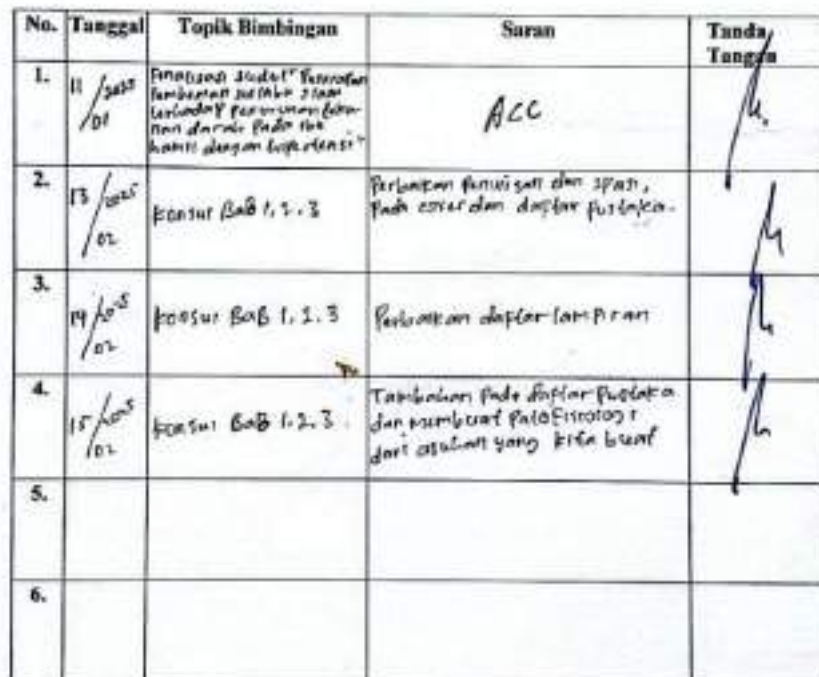 No. Tanggal Topik Bimbingan Saran Tanda
Tangan
1. 11/2025
01
Pemberian susu
terhadap penurunan teka-
nan darah Pada ibu
hamil dengan hipertensi"
ACC
2. 13/2025
02
konsul BaB 1, 2, 3
Perbaikan Penulisan dan spasi,
Pada cover dan daftar pustaka.
3. 14/2025
02
konsul BaB 1, 2, 3
Perbaikan daftar lampiran
4. 15/2025
02
konsul BaB 1, 2, 3
Tambahan Pada daftar Pustaka
dan membuat Patofisiologi
dari asuhan yang kita buat
5.
6.